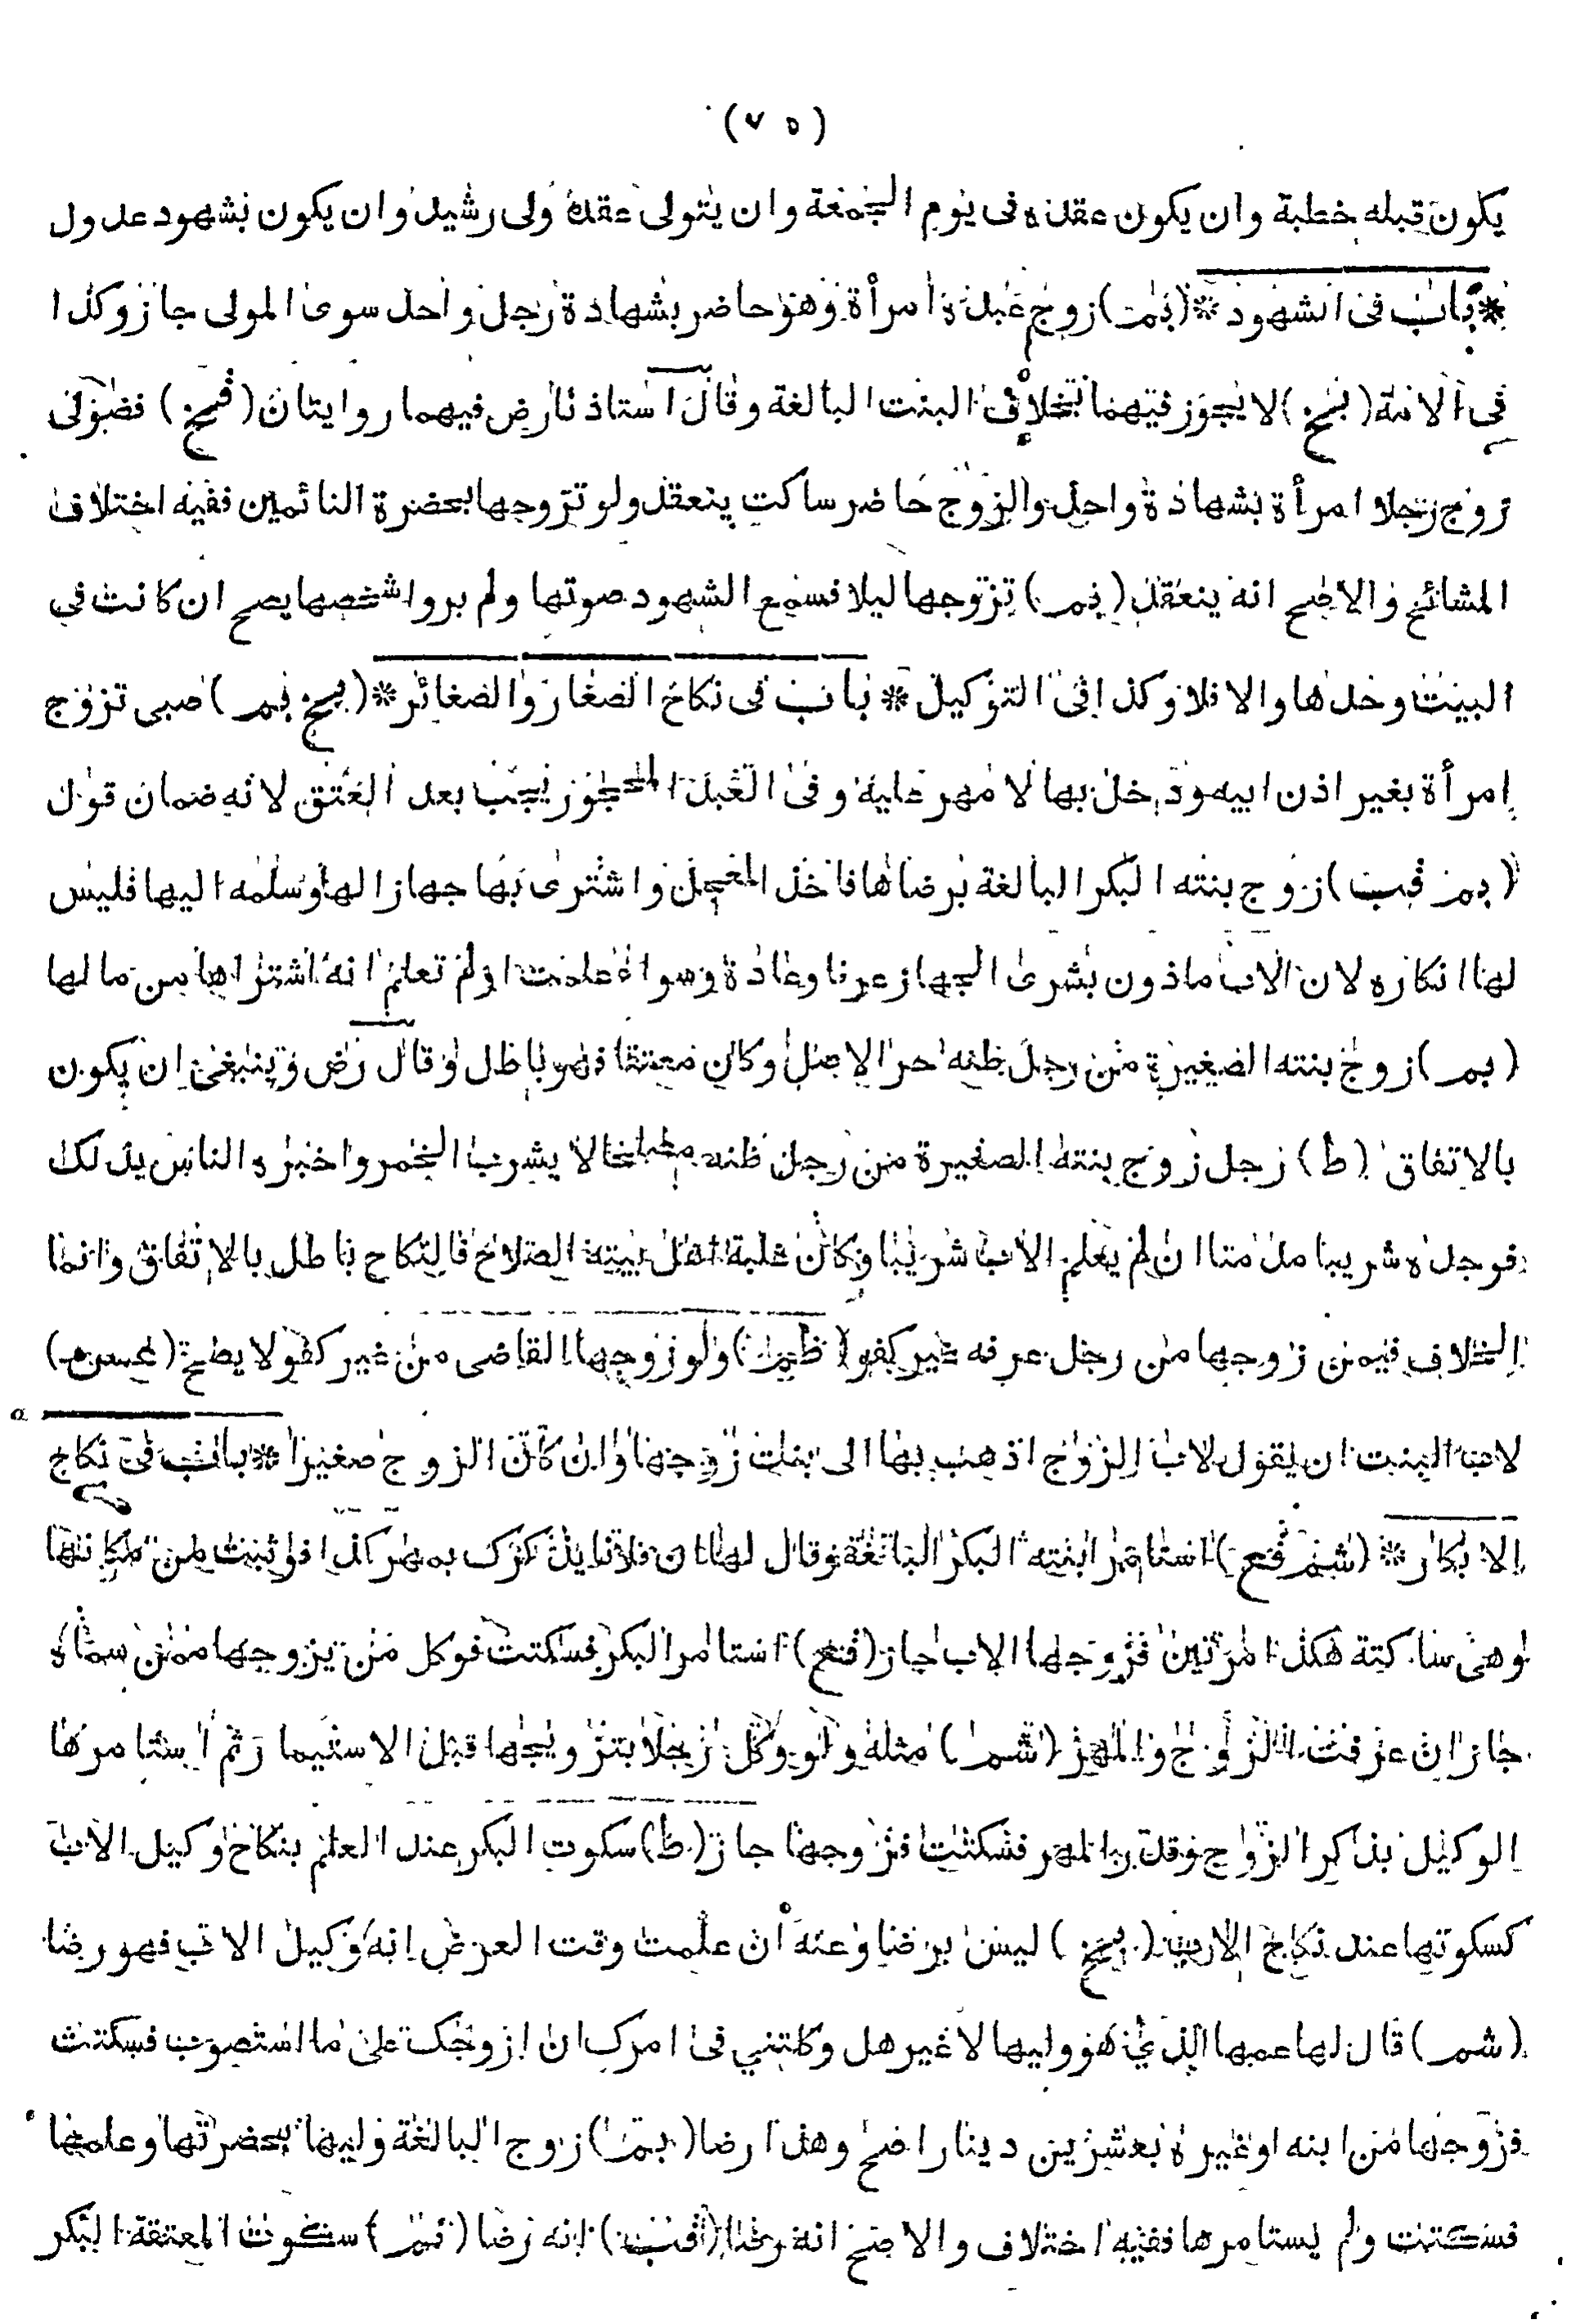 (٧٥)
يكون قبله خطبة وان يكون عقده فى يوم الجمعة وان يتولى عقده ولى رشيد وان يكون بشهود عدول
* باب فى الشهود * (بم) زوج عبده امرأة وهو حاضر بشهادة رجل واحد سوى المولى جاز وكذا
فى الامة (بخ) لا يجوز فيهما بخلاف البنت البالغة وقال استاذنا رض فيهما روايتان (قخ) فضولى
زوج رجلا امرأة بشهادة واحد والزوج حاضر ساكت ينعقد ولو تزوجها بحضرة النائمين ففيه اختلاف
المشائخ والاصح انه ينعقد (بم) تزوجها ليلا فسمع الشهود صوتها ولم يروا شخصها يصح ان كانت فى
البيت وحدها والا فلا وكذا فى التوكيل * باب فى نكاح الصغار والصغائر * (بخ بم) صبى تزوج
امرأة بغير اذن ابيه ودخل بها لا مهر عليه وفى العبد المحجور يجب بعد العتق لانه ضمان قول
(بم قب) زوج بنته البكر البالغة برضاها فاخذ المعجل واشترى بها جهازا لها وسلمه اليها فليس
لها انكاره لان الاب ماذون بشرى الجهاز عرفا وعادة وسواء علمت او لم تعلم انه اشتراها من مالها
(بم) زوج بنته الصغيرة من رجل ظنه حر الاصل وكان معتقا فهو باطل وقال رض وينبغى ان يكون
بالاتفاق (ط) رجل زوج بنته الصغيرة من رجل ظنه مصلحا لا يشرب الخمر واخبره الناس بذلك
فوجده شريبا مدمنا ان لم يعلم الاب شريبا وكان غلبة اهل بيته الصلاح فالنكاح باطل بالاتفاق وانما
الخلاف فيمن زوجها من رجل عرفه غير كفو (ظم) ولو زوجها القاضى من غير كفو لا يصح
لاب البنت ان يقول لاب الزوج اذهب بها الى بيت زوجها وان كان الزوج صغيرا * باب فى نكاح
الابكار * (شم قع) استامر ابنته البكر البالغة وقال لها ان فلانا يذكرك بمهر كذا فوثبت من مكانها
وهى ساكتة هكذا مرتين فزوجها الاب جاز (قع) استامر البكر فسكتت فوكل من يزوجها ممن سماه
جاز ان عرفت الزوج والمهر (شم) مثله ولو وكل رجلا بتزويجها قبل الاستيمار ثم استامرها
الوكيل بذكر الزوج وقدر المهر فسكتت فزوجها جاز (ط) سكوت البكر عند العلم بنكاح وكيل الاب
كسكوتها عند نكاح الاب (بخ) ليس برضا وعنه ان علمت وقت العرض انه وكيل الاب فهو رضا
(شم) قال لها عمها الذى هو وليها لا غير هل وكلتنى فى امرك ان ازوجك على ما استصوب فسكتت
فزوجها من ابنه او غيره بعشرين دينارا صح وهذا رضا (بم) زوج البالغة وليها بحضرتها وعلمها
فسكتت ولم يستامرها ففيه اختلاف والاصح انه رضا (قب) انه رضا سكوت المعتقة البكر